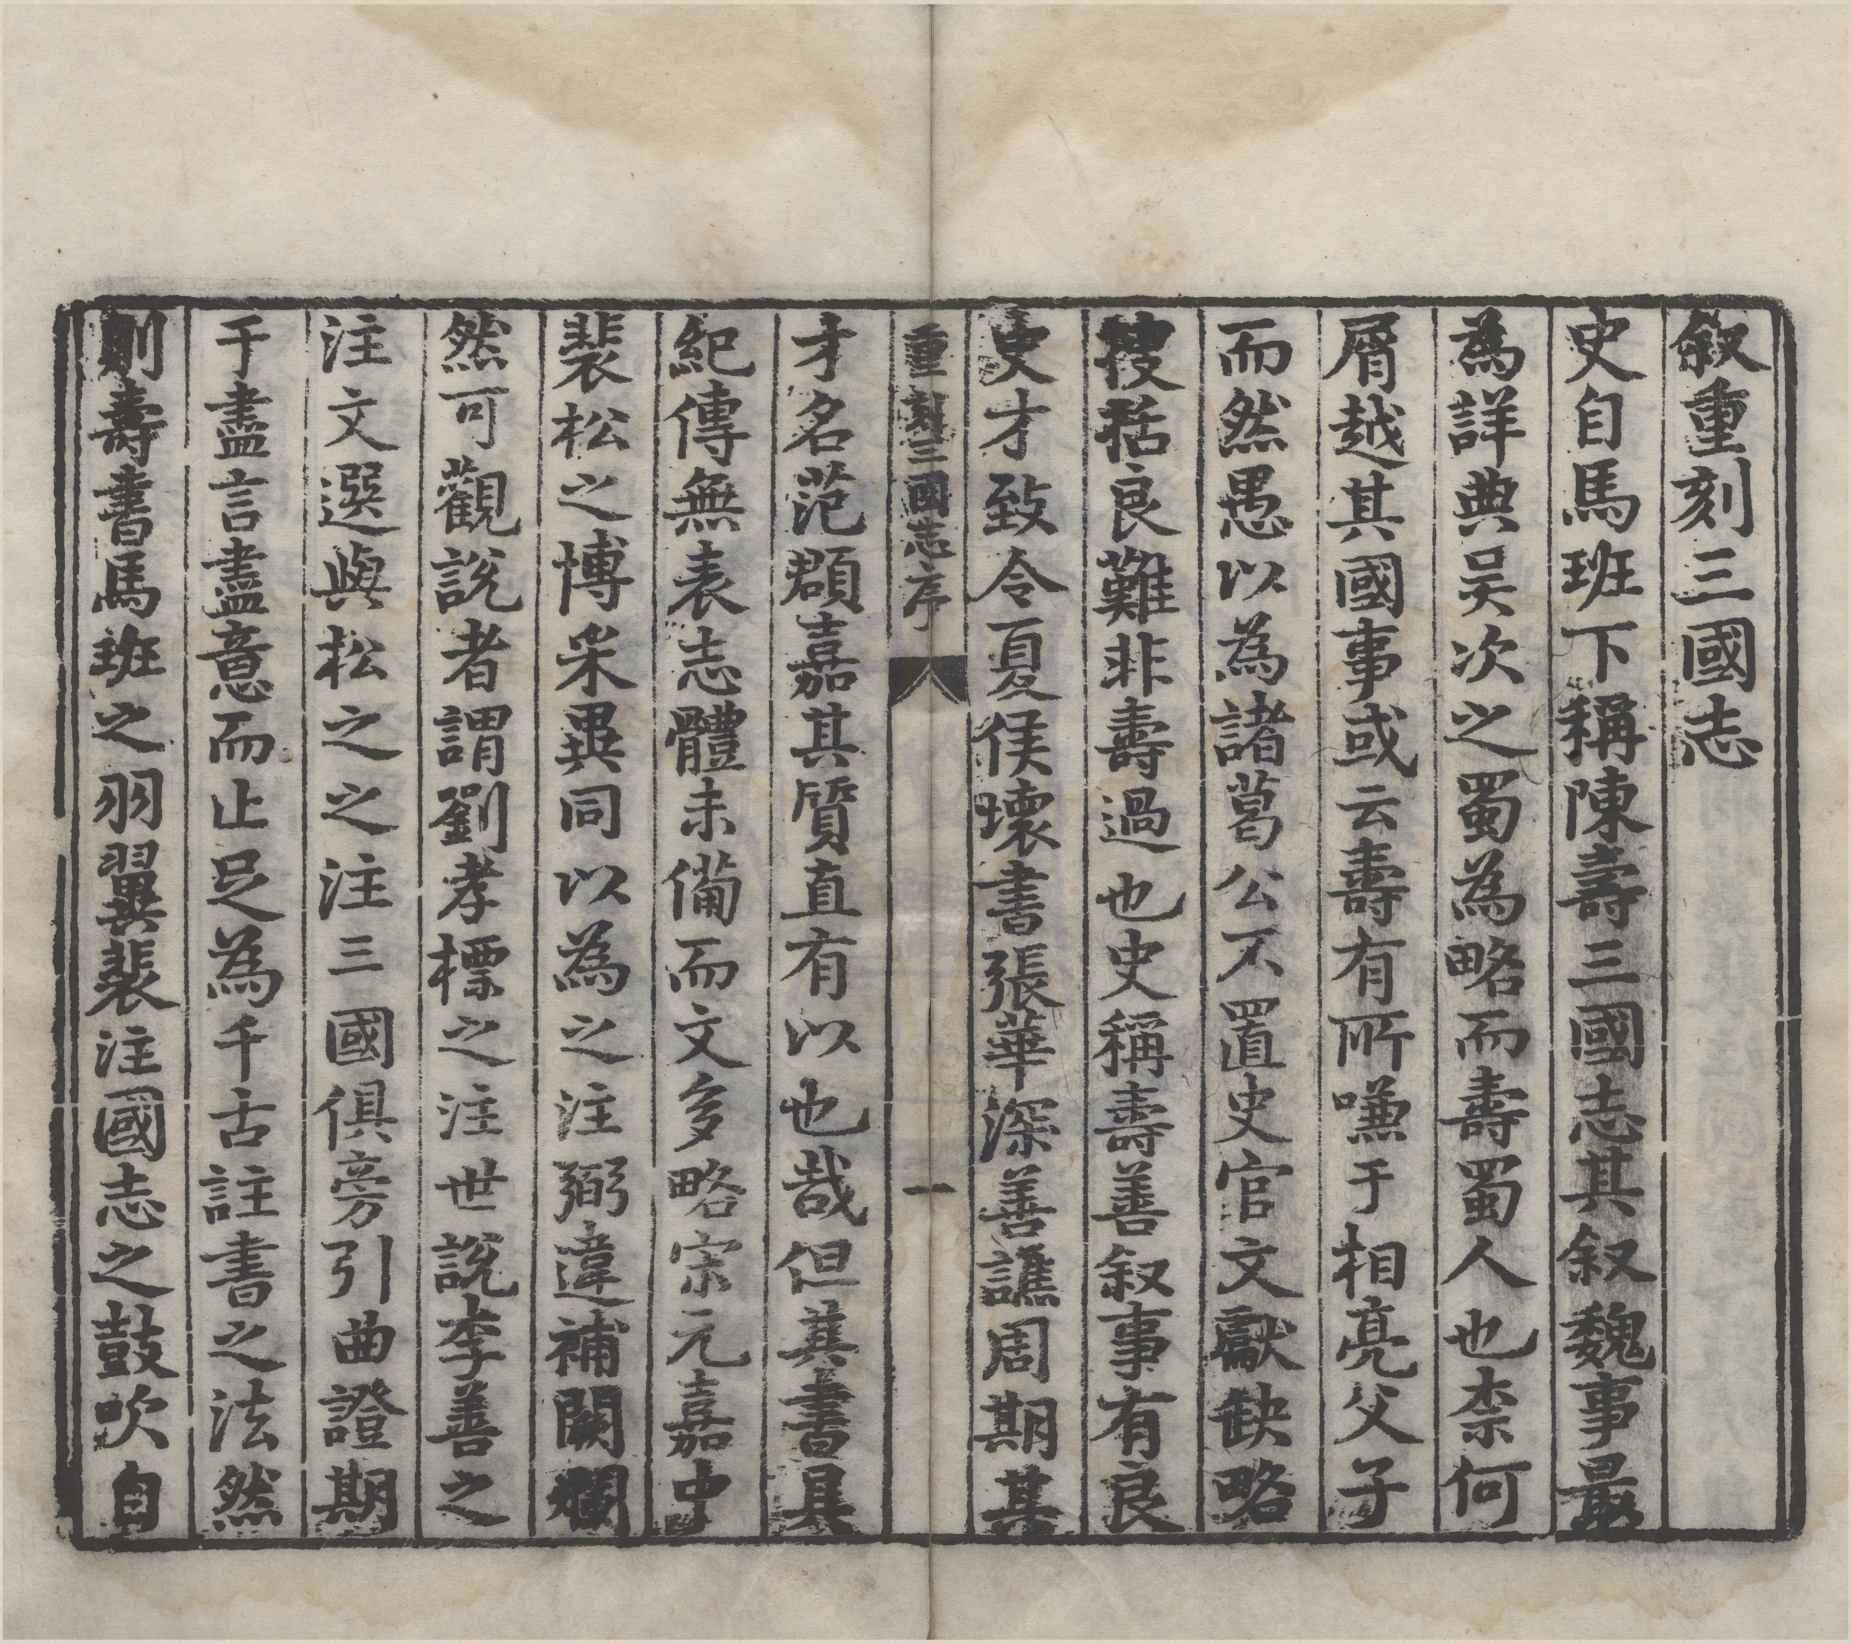 叙重刻三國志
史自馬班下稱陳壽三國志其叙魏事最
為詳典吴次之蜀為略而壽蜀人也柰何
屑越其國事或云壽有所嗛于相亮父子
而然愚以為諸葛公不置史官文獻缺略
搜括良難非壽過也史稱壽善叙事有良
史才致令夏侯壞書張華深善譙周期其
重刻三國志序
一
才名范頵嘉其質直有以也哉但其書具
紀傳無表志體未備而文多略宋元嘉中
裴松之博采異同以為之注弼違補闕斕
然可觀說者謂劉孝標之注世說李善之
注文選與松之之注三國俱旁引曲證期
于盡言盡意而止足為千古註書之法然
則壽書馬班之羽翼裴注國志之鼓吹自